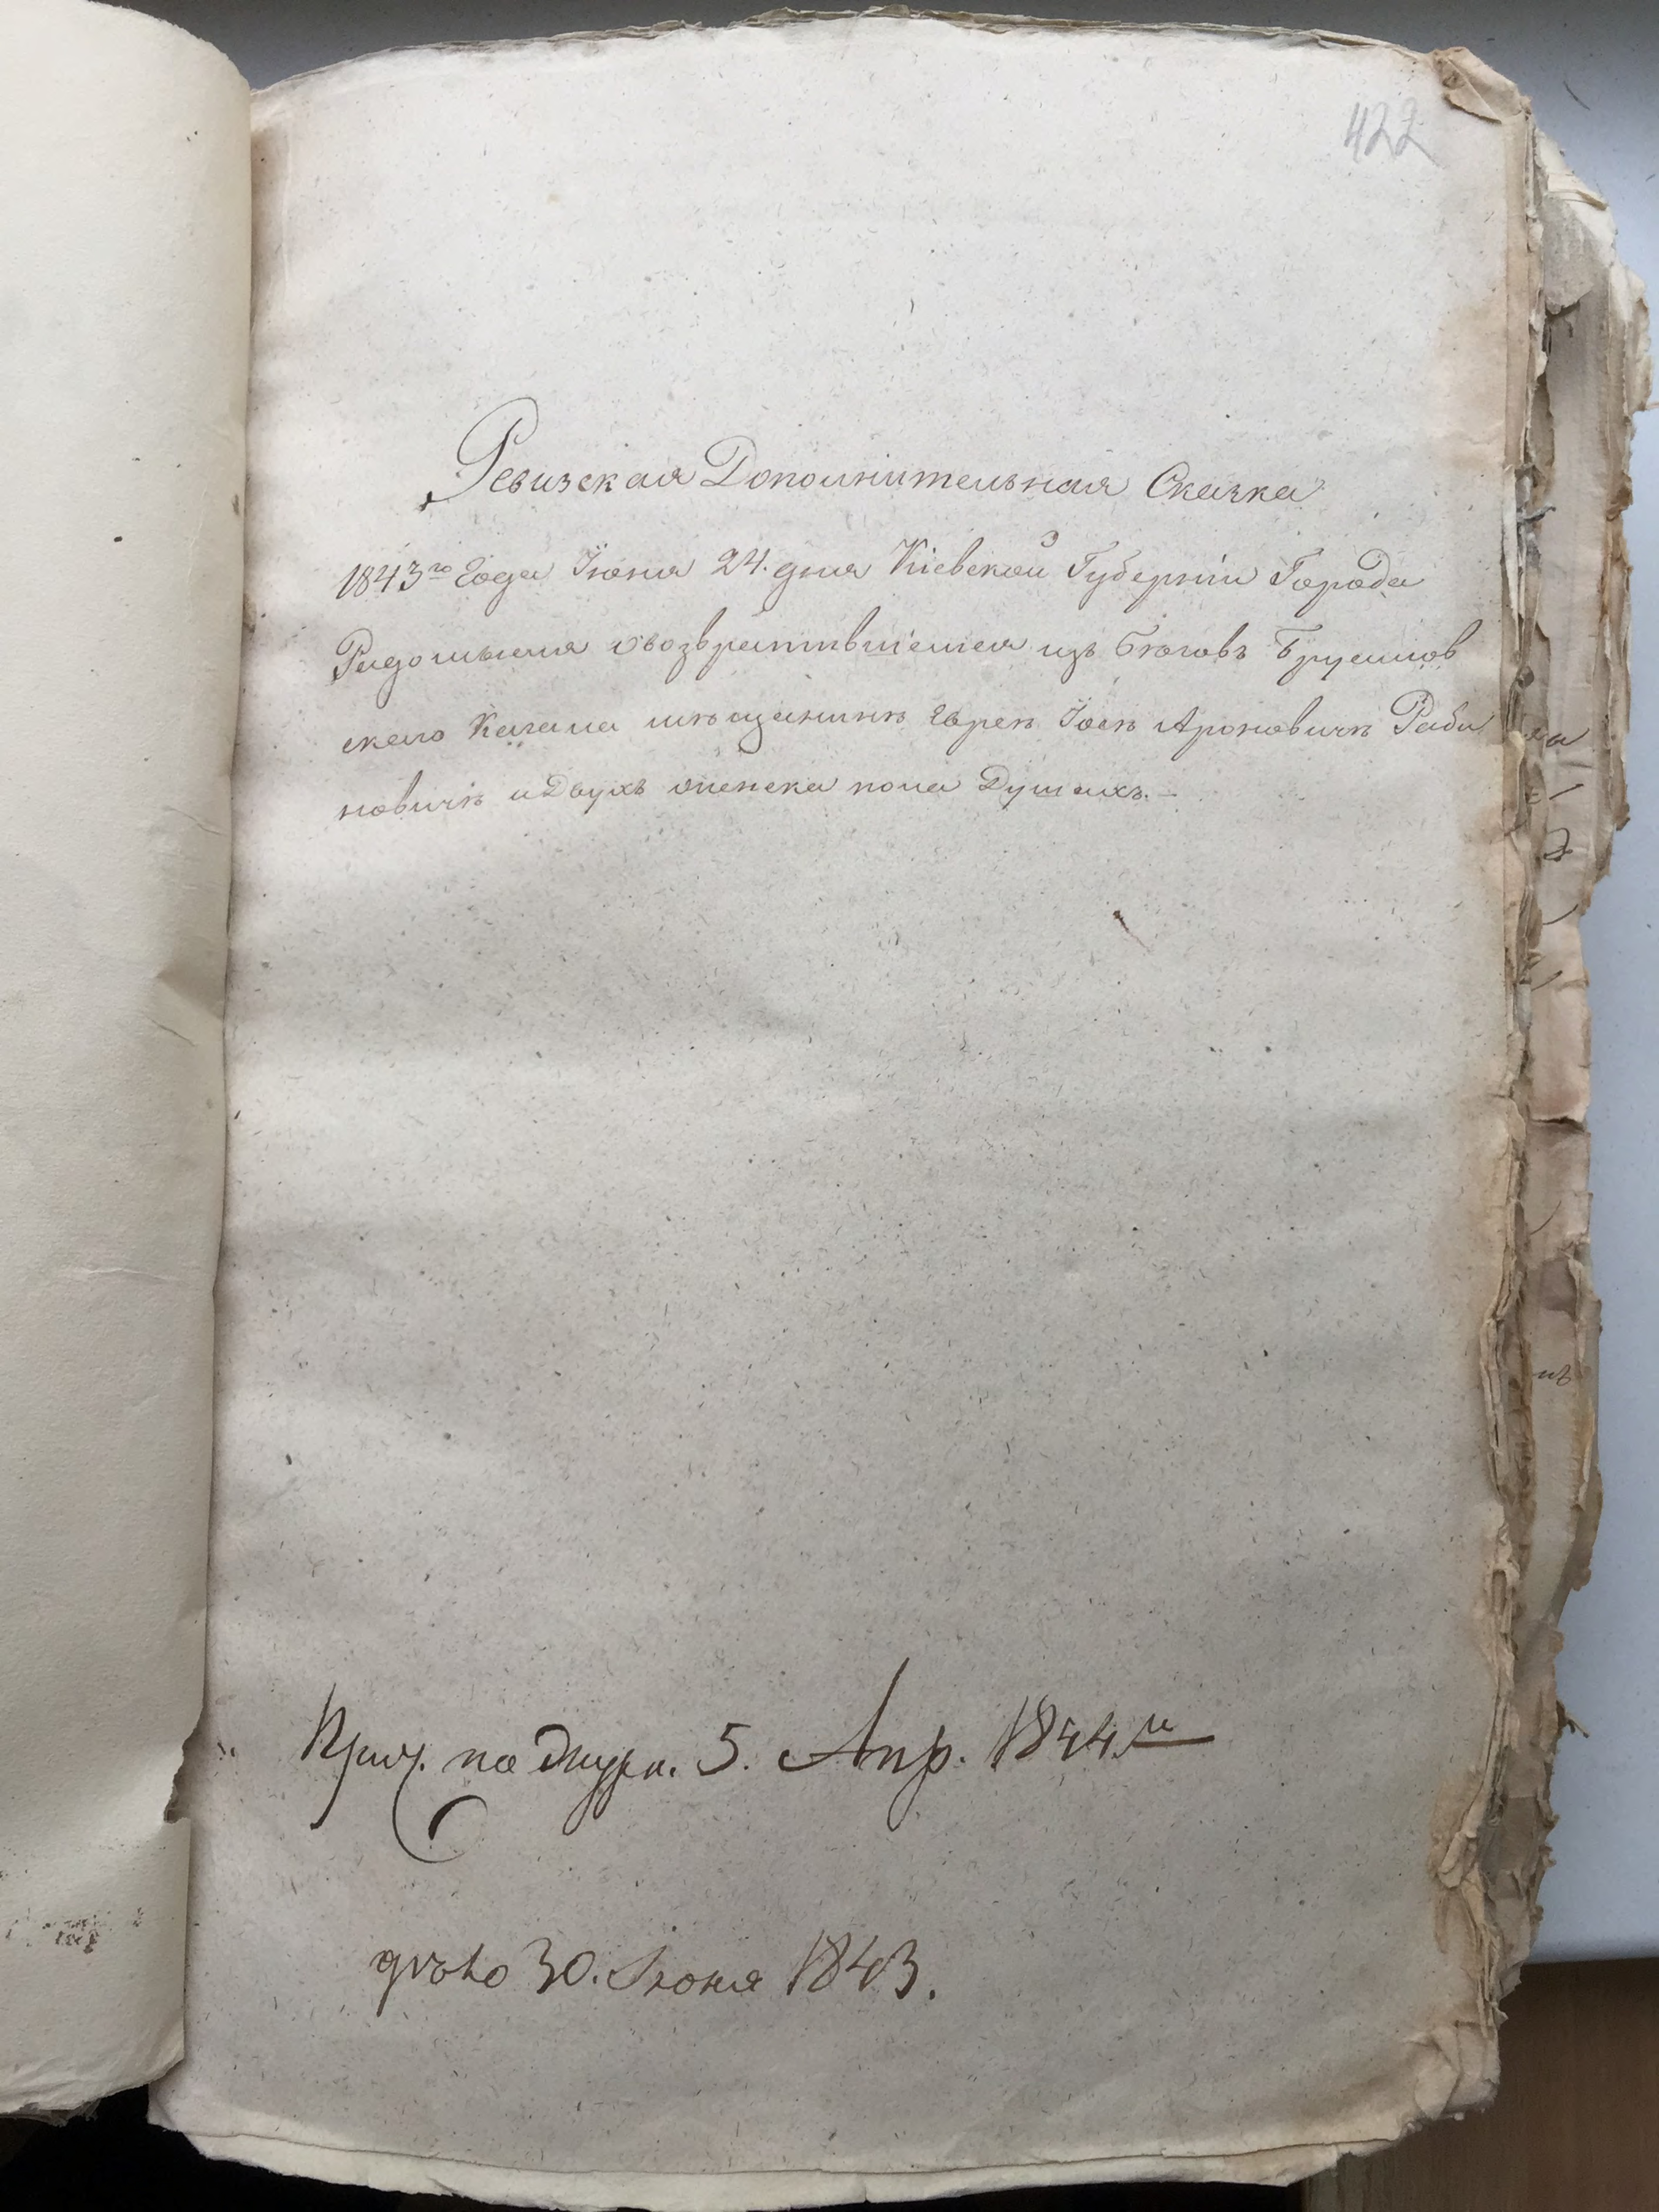 422
Ревизская Дополнительная Сказка
1843го Года Іюня 24. дня Кіевской Губерніи Города
Радомысля овозвратившемся изъ Бѣговъ Брусилов
скаго Кагала мѣщанинѣ Евреѣ Іосѣ Ароновичѣ Раби
новичѣ и Двухъ женска пола Душахъ.—
по журн. 5. Апр. 1844.
30. Іюня 1843.